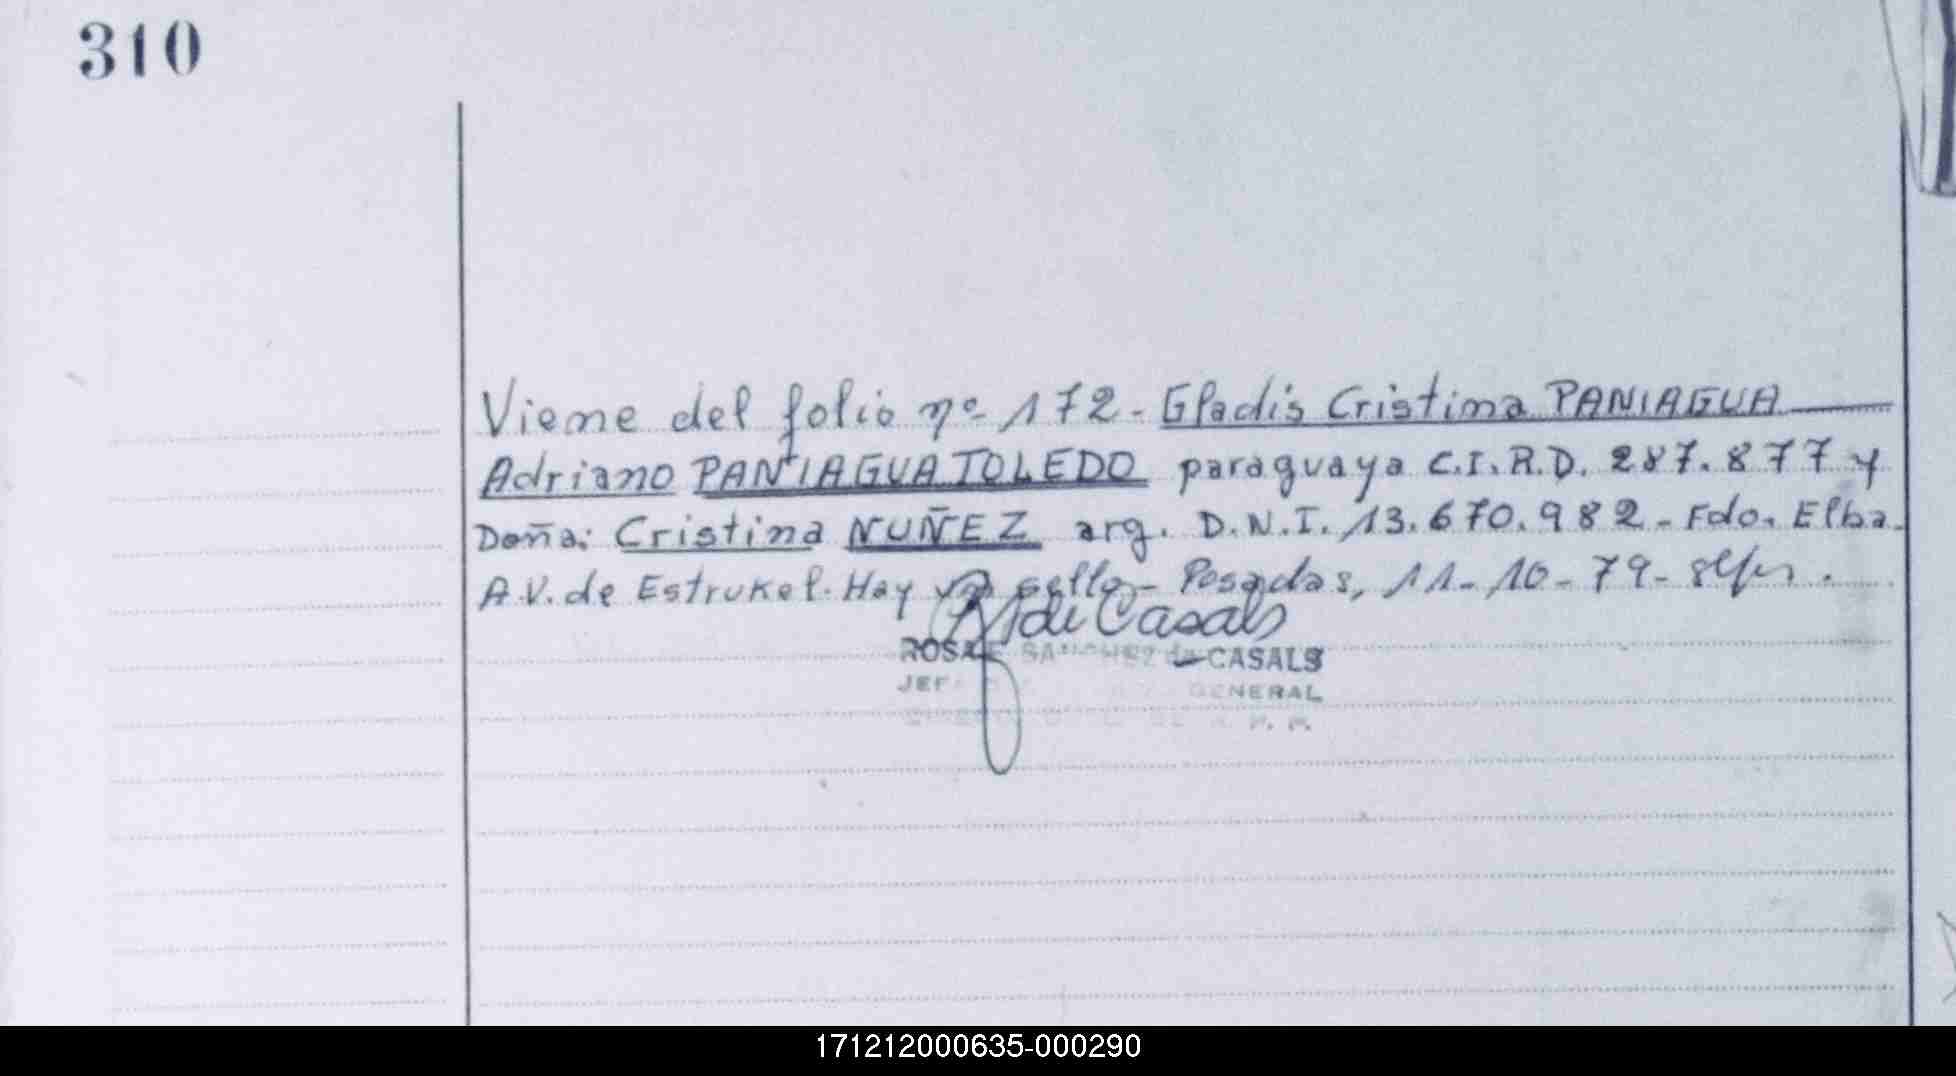 310
Viene del folio nº 172- Gladis Cristina PANIAGUA
Adriano PANIAGUA TOLEDO paraguaya C.I.R.D. 287.877 y
Doña: Cristina NUÑEZ arg. D.N.I. 13.670.982- Fdo. Elba
A.V. de Estrukel. Hay un sello- Posadas, 11-10-79-
de Casals
ROSA E SANCHEZ de CASALS
GENERAL
171212000635-000290